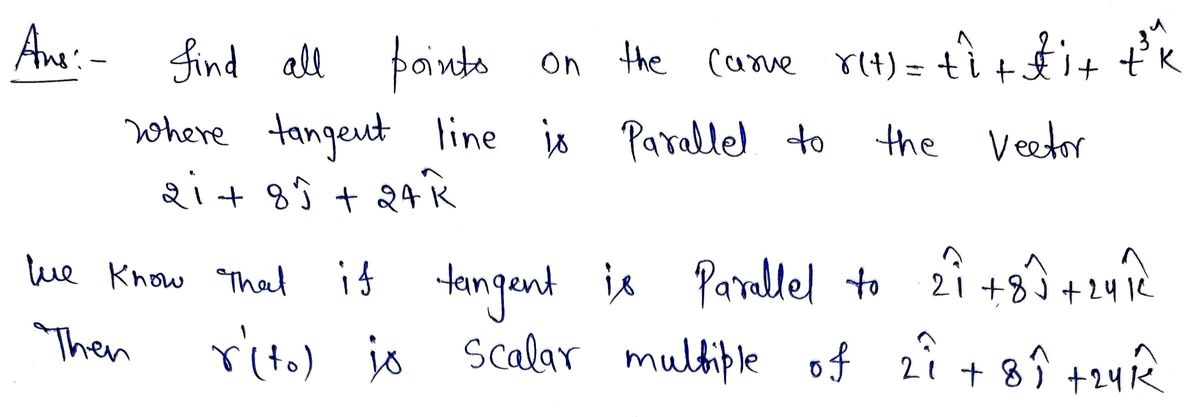 Ans:- find all points on the curve r(t) = tî + t²j + t³k̂
where tangent line is Parallel to the Vector
2i + 8ĵ + 24k̂
We know That if tangent is Parallel to 2î + 8ĵ + 24k̂
Then r'(t₀) is scalar multiple of 2î + 8ĵ + 24k̂